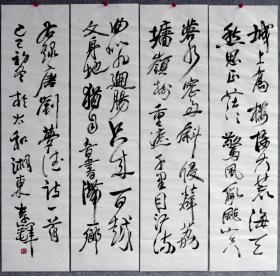 城上高樓接大荒海天
愁思正茫茫驚風亂颭芙
蓉水密雨斜侵薜荔
墻嶺樹重遮千里目江流
曲似九迴腸共來百越
文身地猶自音書滯一鄉
右錄唐劉夢得詩一首
己巳初於太和湖東